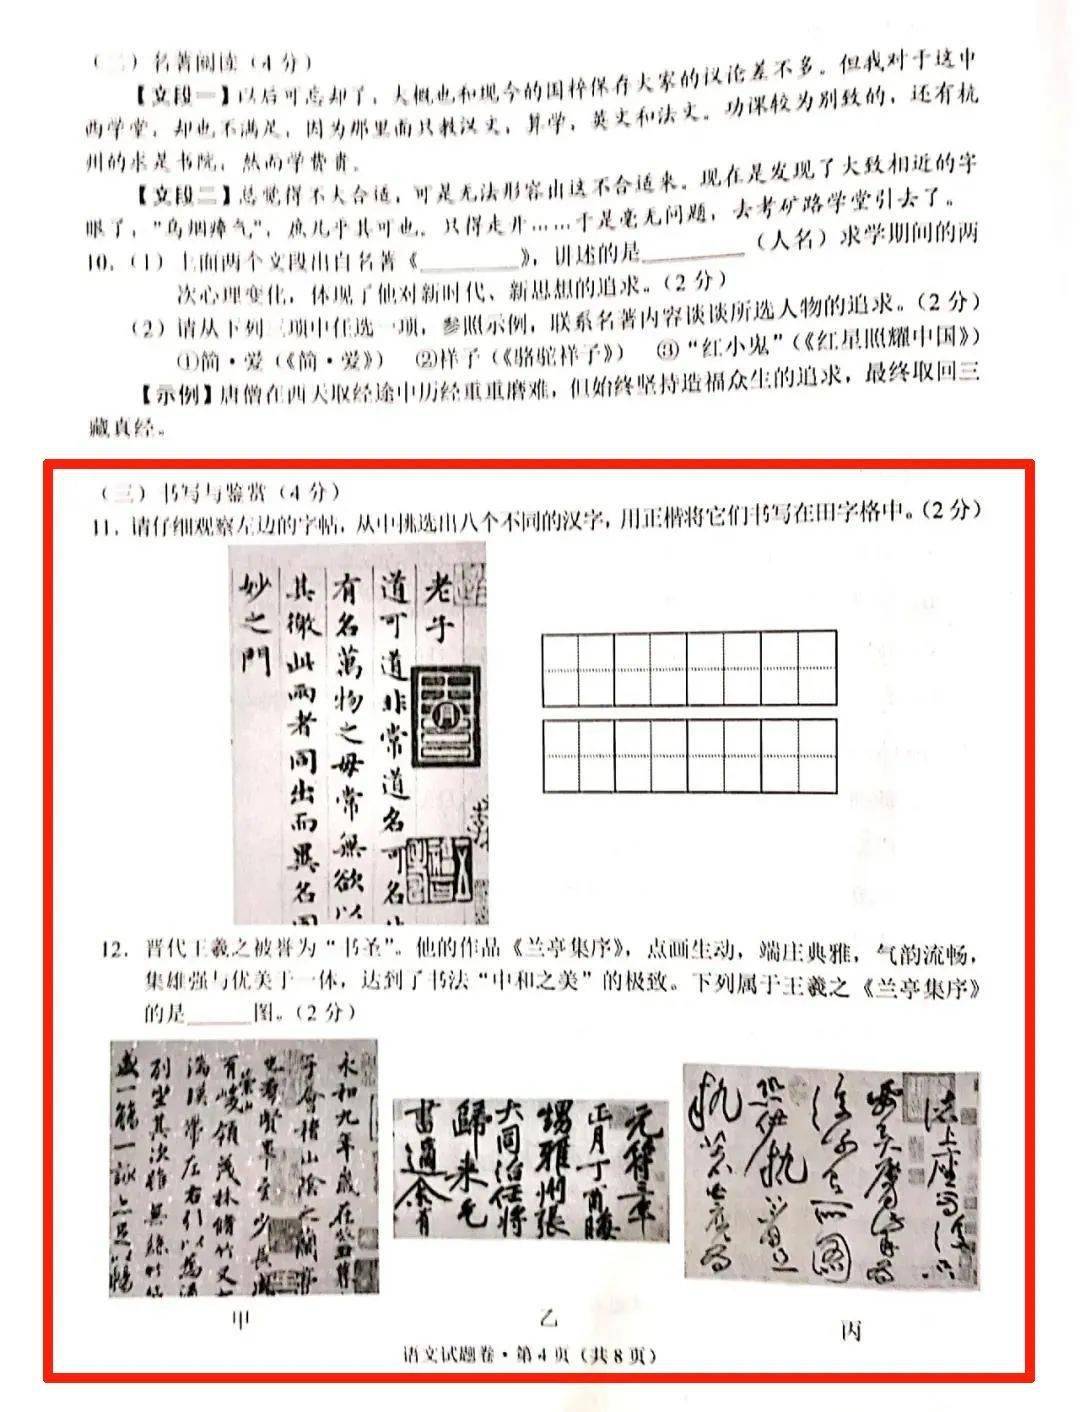 (二)名著阅读(4分)
【文段一】以后可忘却了,大概也和现今的国粹保存大家的议论差不多。但我对于这中
西学堂,却也不满足,因为那里面只教汉文,算学,英文和法文。功课较为别致的,还有杭
州的求是书院,然而学费贵。
【文段二】总觉得不大合适,可是无法形容出这不合适来。现在是发现了大致相近的字
眼了,“乌烟瘴气”,庶几乎其可也。只得走开……于是毫无问题,去考矿路学堂引去了。
10.(1)上面两个文段出自名著《________》,讲述的是________(人名)求学期间的两
次心理变化,体现了他对新时代、新思想的追求。(2分)
(2)请从下列三项中任选一项,参照示例,联系名著内容谈谈所选人物的追求。(2分)
①简·爱(《简·爱》) ②祥子(《骆驼祥子》) ③“红小鬼”(《红星照耀中国》)
【示例】唐僧在西天取经途中历经重重磨难,但始终坚持造福众生的追求,最终取回三
藏真经。
(三)书写与鉴赏(4分)
11.请仔细观察左边的字帖,从中挑选出八个不同的汉字,用正楷将它们书写在田字格中。(2分)
老子
道可道非常道名可名
有名萬物之母常無欲以
其徼此兩者同出而異名同
妙之門
12.晋代王羲之被誉为“书圣”。他的作品《兰亭集序》,点画生动,端庄典雅,气韵流畅,
集雄强与优美于一体,达到了书法“中和之美”的极致。下列属于王羲之《兰亭集序》
的是_____图。(2分)
永和九年歲在癸丑
于會稽山陰之蘭亭
羣賢畢至少長咸
有峻領茂林脩竹又
湍映帶左右引以為流
列坐其次雖無絲竹管
盛一觴一詠亦足以暢
甲
元符三年
正月丁酉晦
甥雅州張
大同治任將
歸來乞
書適余有
乙
丙
语文试题卷·第4页(共8页)